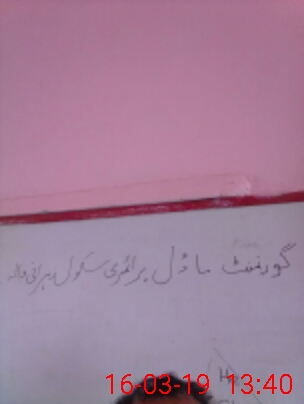 گورنمنٹ ماڈل پرائمری سکول
16-03-19 13:40